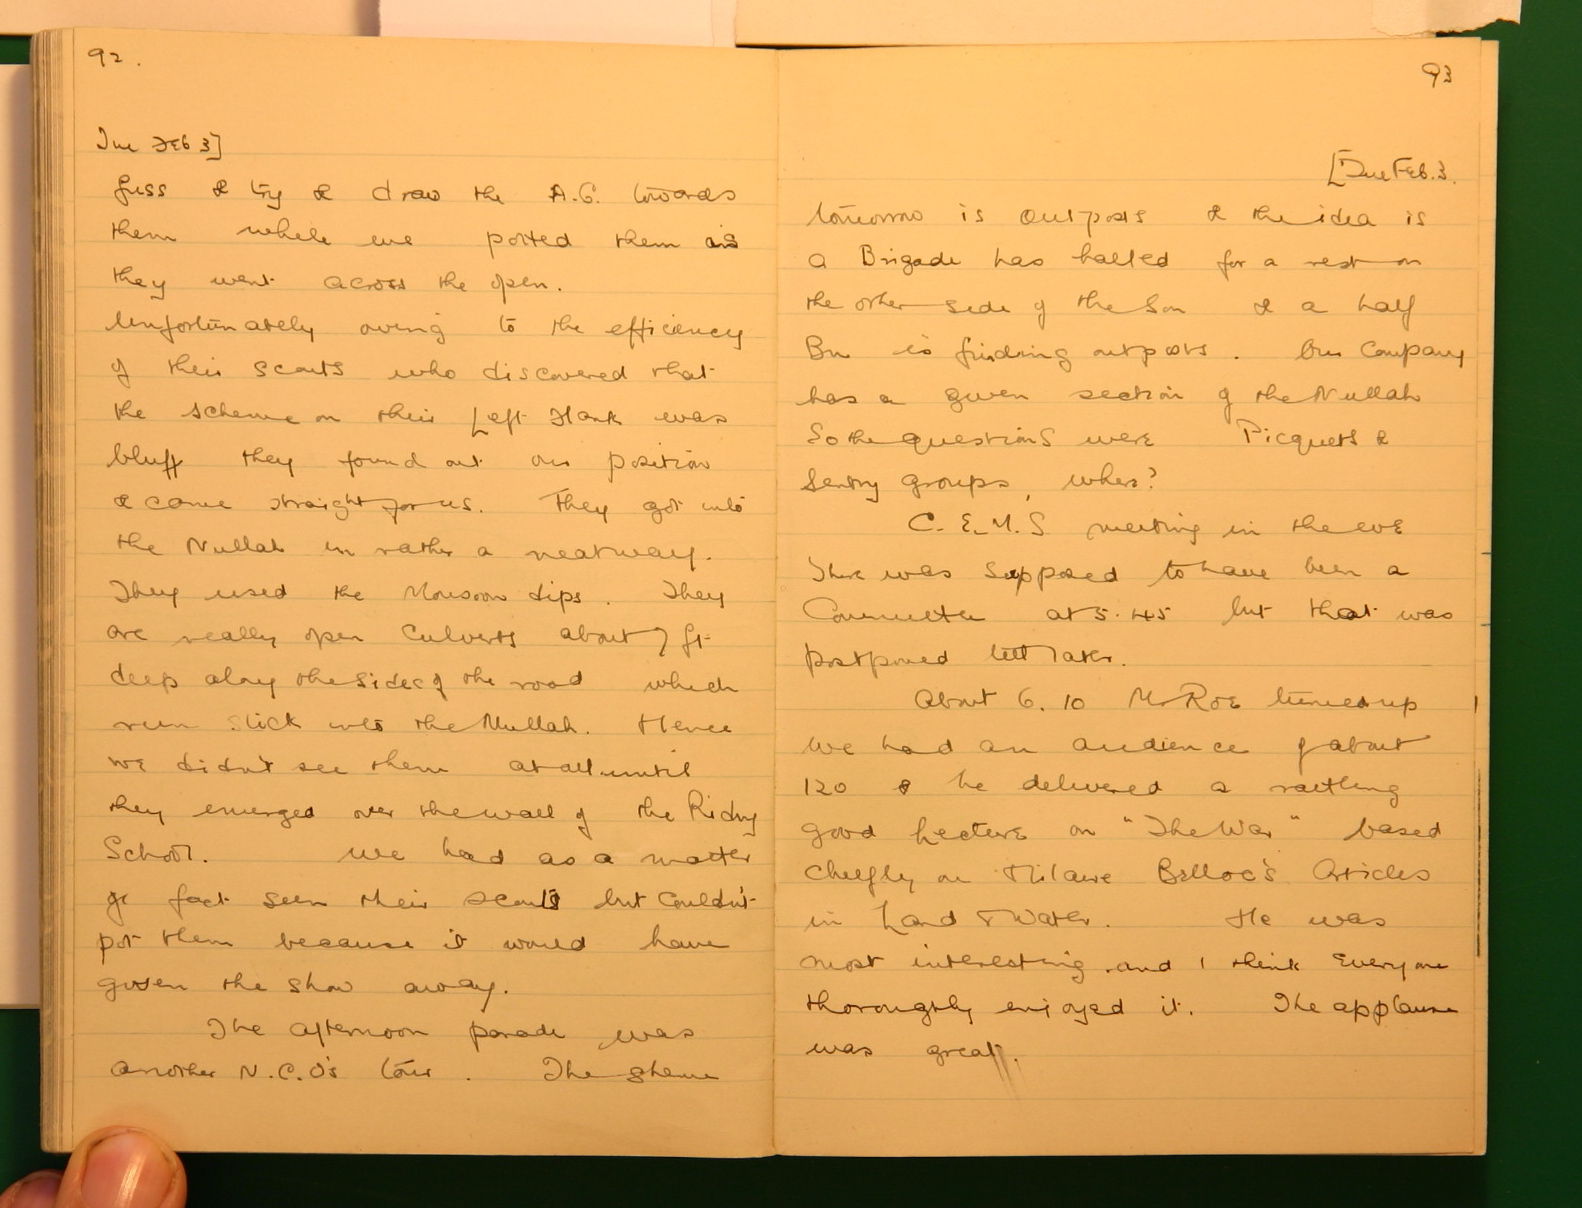 92.
Tue Feb 3]
fuss & try & draw the A.G. towards
them while we potted them as
they went across the open.
Unfortunately owing to the efficiency
of their scouts who discovered that
the scheme on their Left Flank was
bluff they found out our position
& came straight for us. They got into
the Nullah in rather a neat way.
They used the Monsoon dips. They
are really open culverts about 7 ft
deep along the sides of the road which
run slick into the Nullah. Hence
we didn't see them at all until
they emerged over the wall of the Riding
School. We had as a matter
of fact seen their scouts but couldn't
pot them because it would have
given the show away.
The afternoon parade was
another N.C.O's tour. The sheme
93
[Tue Feb. 3.
tomorrow is outposts & the idea is
a Brigade has halted for a rest on
the other side of the Son & a half
Bn is finding outposts. Our Company
has a given section of the Nullah
So the questions were Picquets &
Sentry groups, where?
C.E.M.S meeting in the eve
There was supposed to have been a
Committee at 5.45 but that was
postponed till later.
About 6.10 Mr Roe turned up
we had an audience of about
120 & he delivered a rattling
good Lecture on "The War" based
cheifly on Hilaire Belloc's Articles
in Land & Water. He was
most interesting and I think everyone
thoroughly enjoyed it. The applause
was great.